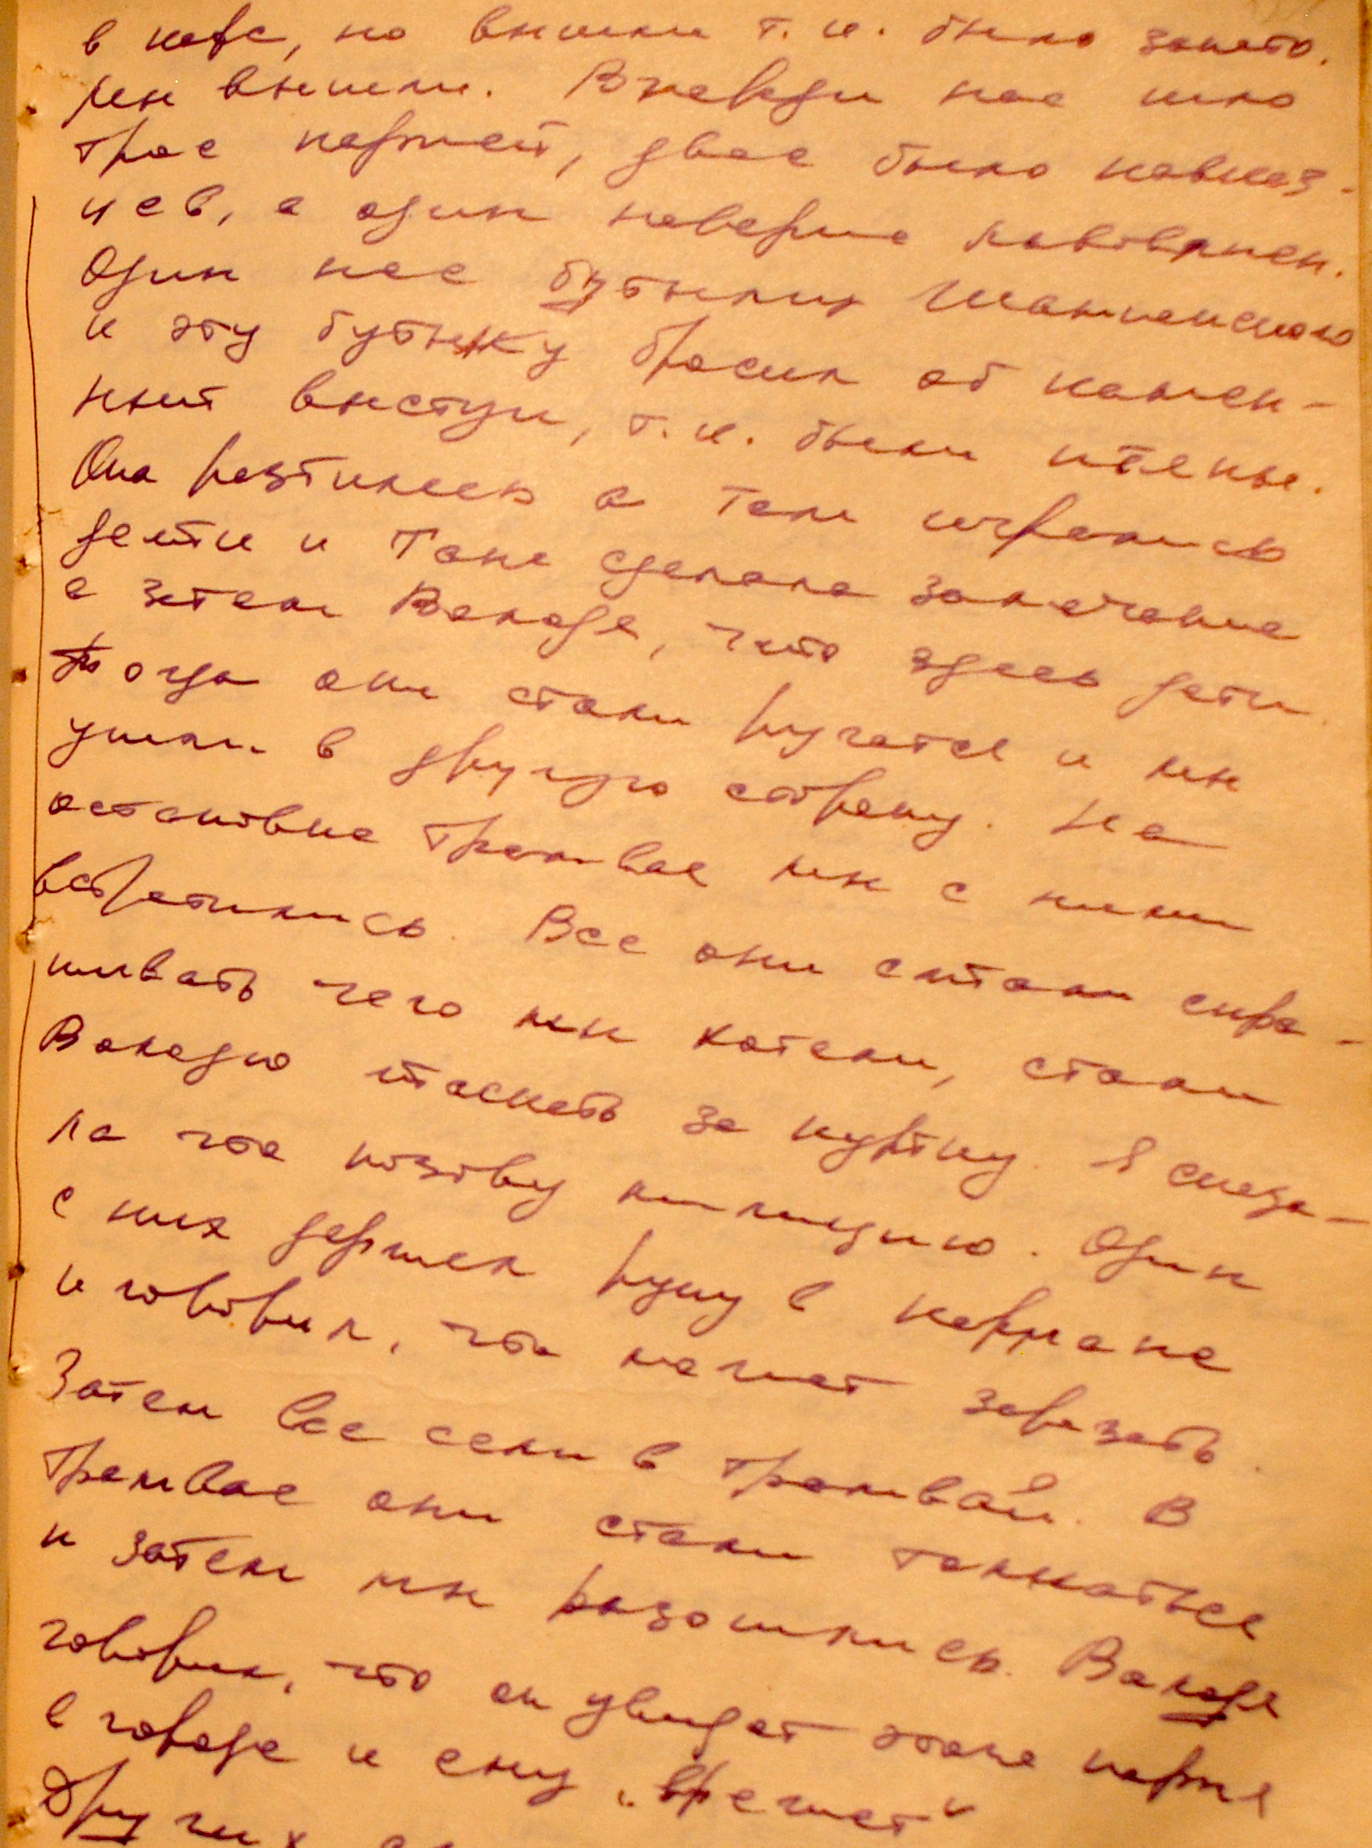 в кафе, но вышли т.к. было занято.
мы вышли. Впереди нас шло
трое парней, двое было кавказ-
цев, а один наверно
Один нес бутылку Шампанского
и эту бутылку бросил об камен-
ный выступ, т.к. были пьяны.
Она разбилась а там игрались
дети и Таня сделала замечание
а затем Володя, что здесь дети.
Тогда они стали ругатся и мы
ушли в другую сторону. На
остановке трамвая мы с ними
встретились. Все они стали спра-
шивать чего мы хотели, стали
Володю таскать за куртку. Я сказа-
ла что позову милицию. Один
с них держал руку в кармане
и говорил, что может зарезать.
Затем все сели в трамвай. В
трамвае они стали толкаться
и затем мы разошлись. Володя
говорил, что он увидет этого парня
в городе и ему „врежет“
Других